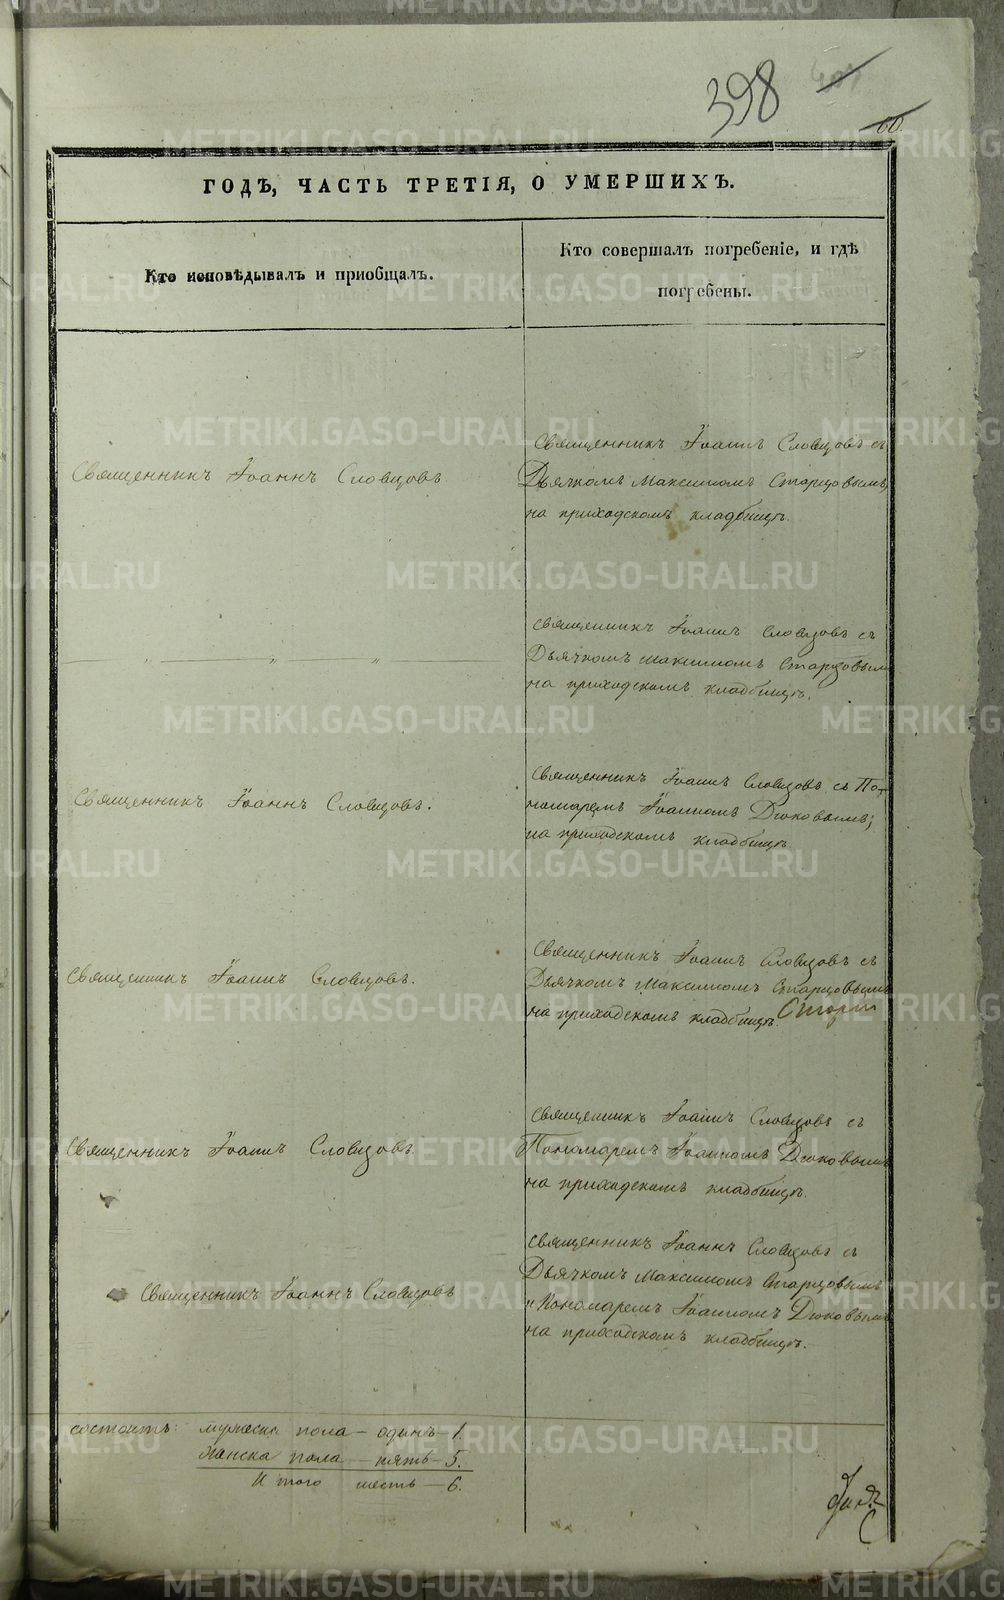 398
60.
ГОДЪ, ЧАСТЬ ТРЕТІЯ, О УМЕРШИХЪ.
Кто исповѣдывалъ и пріобщалъ.
Кто совершалъ погребеніе, и гдѣ
погребены.
Священникъ Іоаннъ Словцовъ
Священникъ Іоаннъ Словцовъ съ
Дьячкомъ Максимомъ Старцовымъ,
на приходскомъ кладбищѣ.
— „ — „ — „ —
Священникъ Іоаннъ Словцовъ съ
Дьячкомъ Максимомъ Старцовымъ
на приходскомъ кладбищѣ.
Священникъ Іоаннъ Словцовъ.
Священникъ Іоаннъ Словцовъ съ По-
номаремъ Іоанномъ Дюковымъ;
на приходскомъ кладбищѣ
Священникъ Іоаннъ Словцовъ.
Священникъ Іоаннъ Словцовъ съ
Дьячкомъ Максимомъ Старцовымъ
на приходскомъ кладбищѣ.
Священникъ Іоаннъ Словцовъ.
Священникъ Іоаннъ Словцовъ съ
Пономаремъ Іоанномъ Дюковымъ
на приходскомъ кладбищѣ.
Священникъ Іоаннъ Словцовъ
Священникъ Іоаннъ Словцовъ съ
Дьячкомъ Максимомъ Старцовымъ
и Пономаремъ Іоанномъ Дюковымъ
на приходскомъ кладбищѣ.
состоитъ: мужеска пола — одинъ — 1.
Женска пола — пять — 5.
Итого шесть — 6.
METRIKI.GASO-URAL.RU